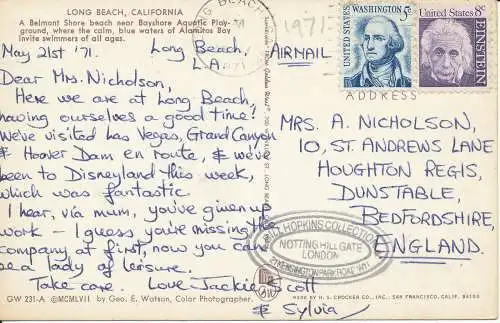 LONG BEACH, CALIFORNIA
A Belmont Shore beach near Bayshore Aquatic Play-
ground, where the calm, blue waters of Alamitos Bay
invite swimmers of all ages.
May 21st '71.
Long Beach,
L.A.
Dear Mrs. Nicholson,
Here we are at Long Beach,
having ourselves a good time!
We've visited Las Vegas, Grand Canyon
& Hoover Dam en route, & we've
been to Disneyland this week,
which was fantastic
I hear, via mum, you've given up
work - I guess you're missing the
company at first, now you can
be a lady of leisure.
Take care. Love Jackie Scott
& Sylvia
GW 231-A ©MCMLVII by Geo. E. Watson, Color Photographer.
1971
AIRMAIL
UNITED STATES
WASHINGTON
5c
UNITED STATES 8c
EINSTEIN
ADDRESS
MRS. A. NICHOLSON,
10, ST. ANDREWS LANE
HOUGHTON REGIS,
DUNSTABLE,
BEDFORDSHIRE,
ENGLAND.
HOPKINS COLLECTION
NOTTING HILL GATE
LONDON
KENSINGTON PARK ROAD W11
MADE BY H. S. CROCKER CO., INC., SAN FRANCISCO, CALIF.